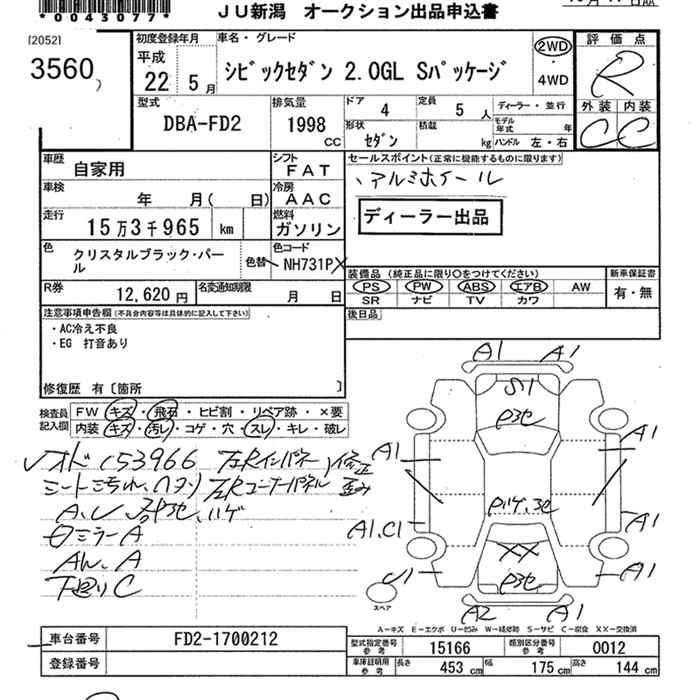 *0043077*
JU新潟 オークション出品申込書
[2052]
3560
初度登録年月
平成
22 5月
車名・グレード
シビックセダン 2.0GL Sパッケージ
2WD
・
4WD
評価点
R
外装 内装
C C
型式
DBA-FD2
排気量
1998
CC
ドア 4
定員 5 人
形状 セダン
積載 kg
ディーラー・並行
モデル年式 年
ハンドル 左・右
車歴
自家用
シフト
FAT
車検
年 月( 日)
冷房
AAC
走行
15万3千965 km
燃料
ガソリン
色
クリスタルブラック・パール
色替
色コード
NH731P
R券
12,620円
名変通知期限
月 日
セールスポイント(正常に機能するものに限ります)
、アルミホイール
ディーラー出品
装備品(純正品に限り○をつけてください)
PS PW ABS エアB AW
SR ナビ TV カワ
新車保証書
有・無
後日品
注意事項申告欄(不具合内容等は具体的に記入して下さい)
・AC冷え不良
・EG 打音あり
修復歴 有〔箇所 〕
検査員記入欄
FW キズ・飛石・ヒビ割・リペア跡・×要
内装 キズ・汚レ・コゲ・穴・スレ・キレ・破レ
153966
シート汚れ、ヘタリ
ハゲ
ミラーA
下廻りC
A1 A1
S1
A1
A1
XX
A1,C1
A1
A1
A2 A1
スペア
A−キズ E−エクボ U−凹み W−補修跡 S−サビ C−腐食 XX−交換済
車台番号
FD2-1700212
登録番号
型式指定番号 参考
15166
類別区分番号 参考
0012
車庫証明用 参考
長さ 453 cm
幅 175 cm
高さ 144 cm